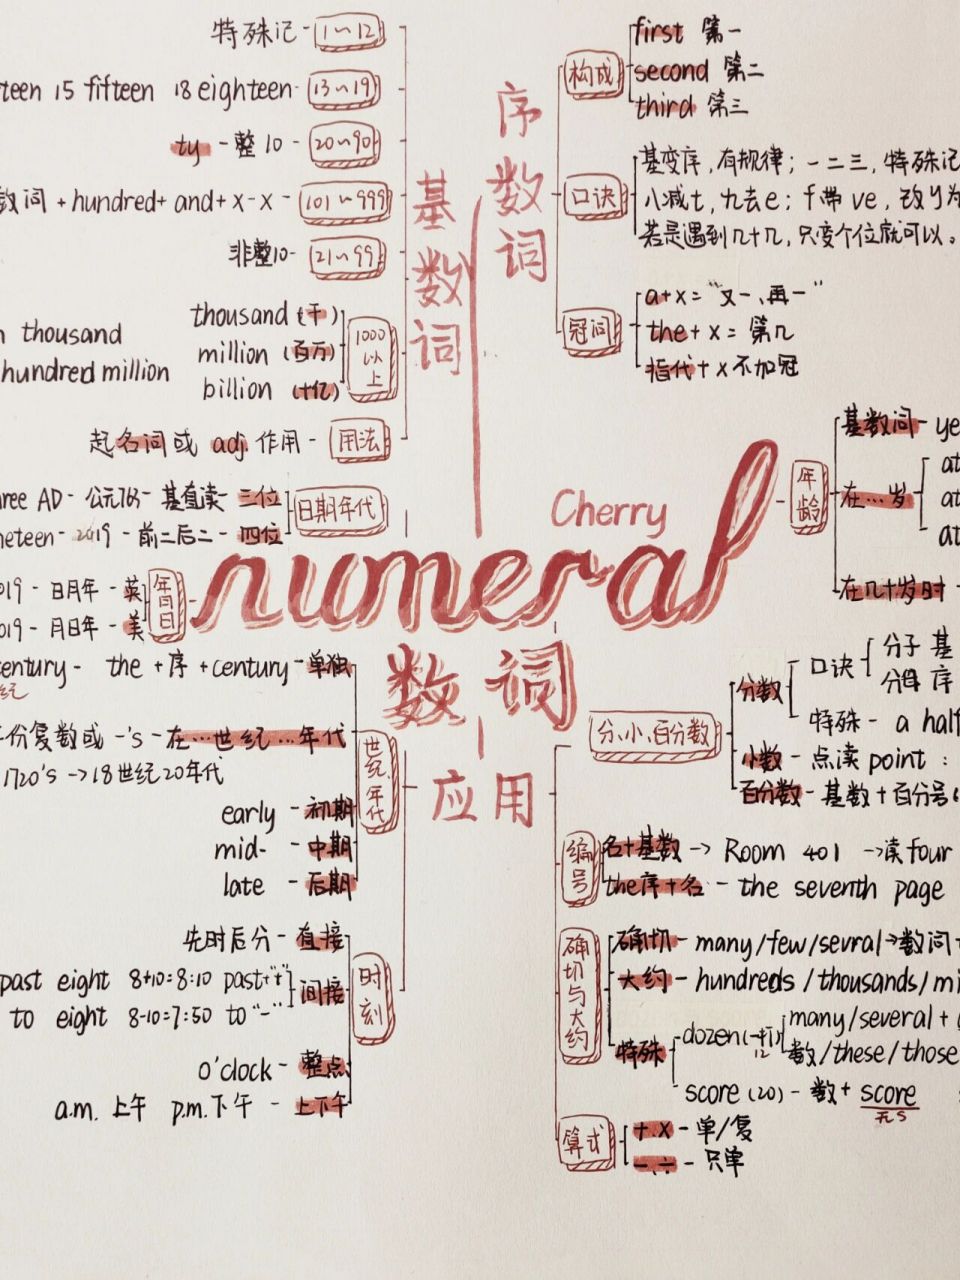 特殊记 - 1~12
teen 15 fifteen 18 eighteen - 13~19
ty - 整10 - 20~90
数词 + hundred + and + x - x - 101~999
非整10 - 21~99
thousand (千)
n thousand
million (百万)
hundred million
billion (十亿)
1000以上
起名词或 adj. 作用 - 用法
基数词
序数词
构成
first 第一
second 第二
third 第三
口诀
基变序，有规律；一二三，特殊记
八减t，九去e；f带ve，改y为
若是遇到几十几，只变个位就可以。
冠词
a+x = "又一、再一"
the + x = 第几
指代 + x 不加冠
hree AD - 公元763 - 基直读 - 三位
neteen - 2019 - 前二后二 - 四位
日期年代
019 - 日月年 - 英
019 - 月日年 - 美
年月日
Cherry
numeral
数词
应用
年龄
基数词 - ye
在…岁
at
at
at
在几十岁时 -
century - the + 序 + century - 单独
纪
份复数或 -'s - 在…世纪…年代
1720's → 18世纪20年代
early - 初期
mid- - 中期
late - 后期
世纪、年代
先时后分 - 直接
past eight 8+10=8:10 past "+"
to eight 8-10=7:50 to "-"
间接
o'clock - 整点
a.m. 上午 p.m. 下午 - 上下午
时刻
分、小、百分数
分数
口诀
分子 基
分母 序
特殊 - a half
小数 - 点读 point :
百分数 - 基数 + 百分号(
编号
名+基数 → Room 401 → 读 four
the序+名 - the seventh page
确切与大约
确切 - many/few/sevral → 数词
大约 - hundreds / thousands / mi
特殊
dozen (一打)
12
many/several +
数/these/those
score (20) - 数 + score
无s
算式
+ x - 单/复
- ÷ - 只单